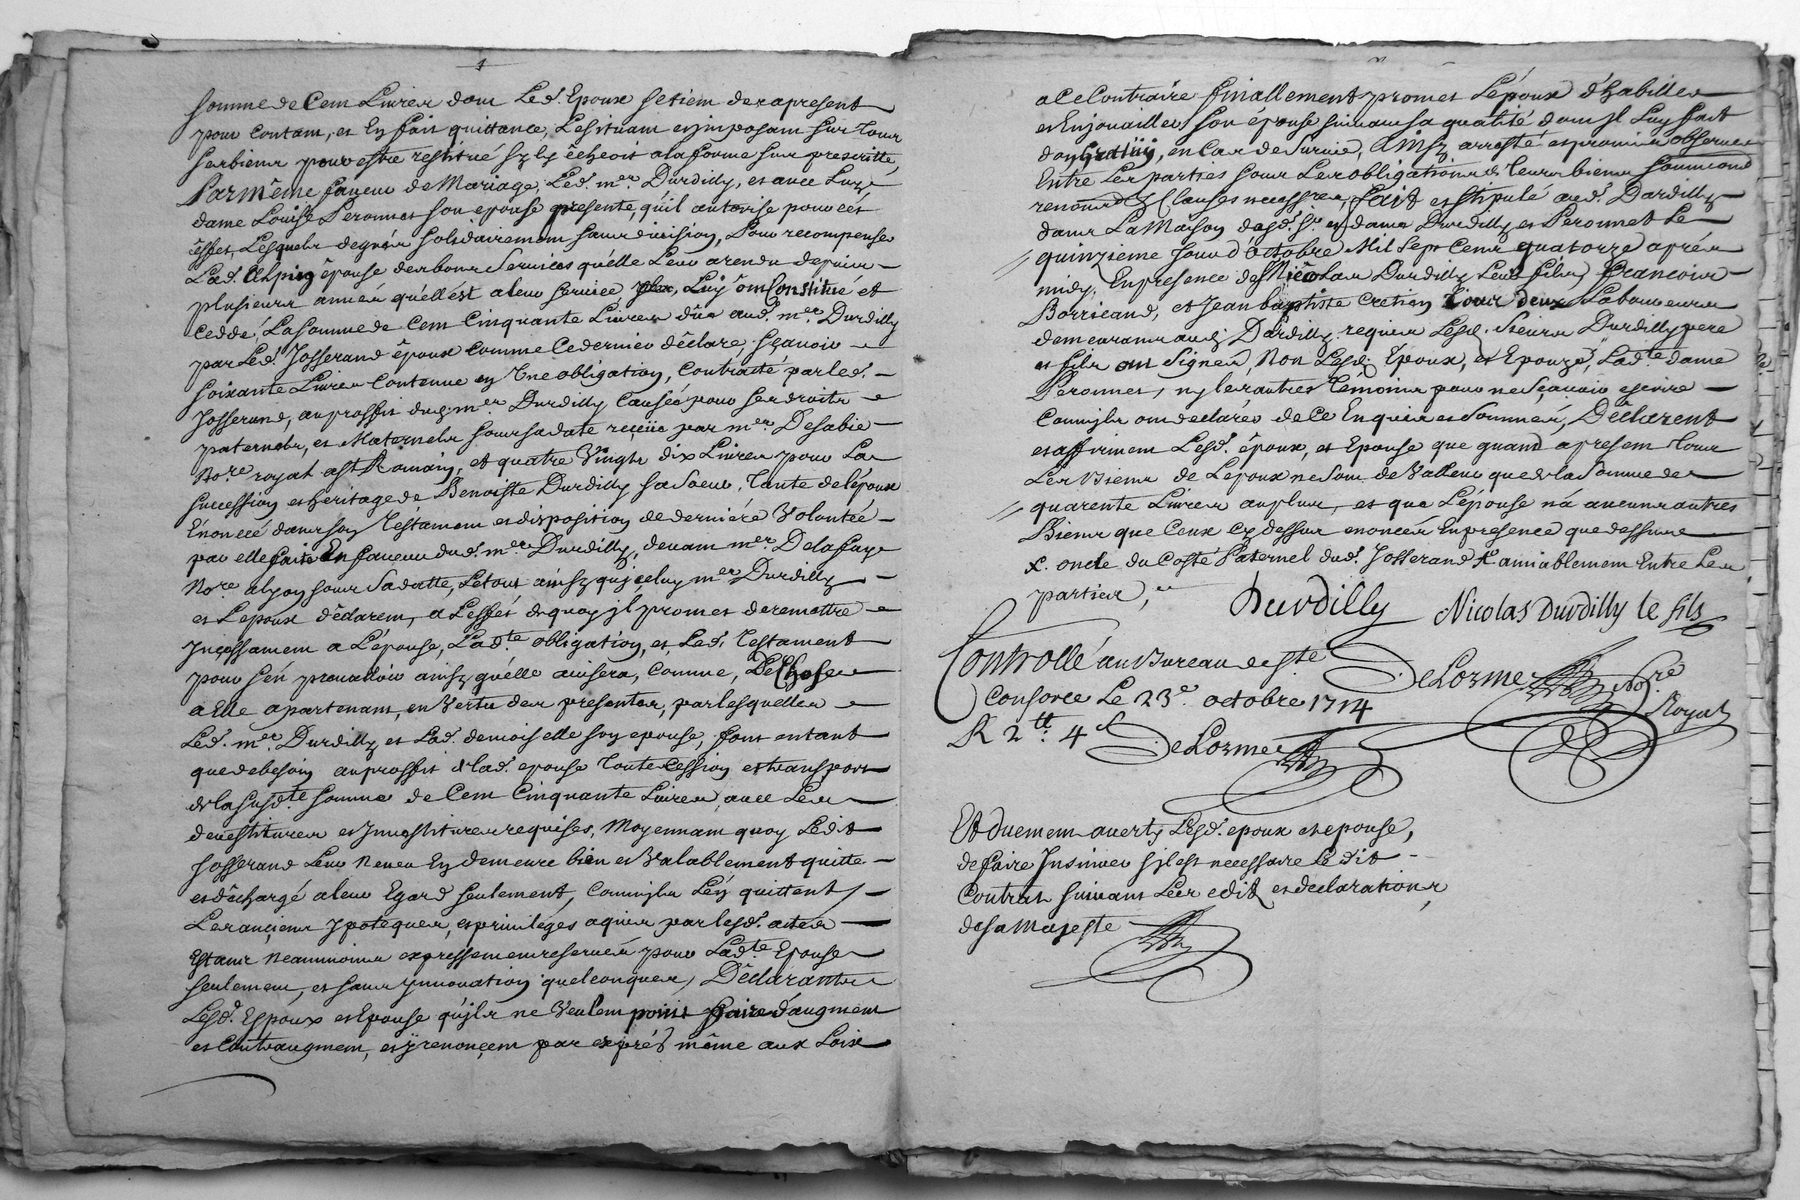 somme de Cent Livres dont Led. Epoux se tient des apresent
pour contant, et En fait quittance, Lesituant et imposant sur tous
ses biens pour estre restitué sy ly êcheoit a la forme sus prescritte,
Par même faveur de Mariage, Led. mer. Durdilly, et avec Luy
dame Louise Peronnet son epouse presente, qu'il autorise pour cet
êffet, Lesquels de gré solidairement sans division, Pour recompenser
Lad. êpouse des bons Services qu'elle Leur a rendu depuis
plusieurs années qu'ell'est a leur service, Luy ont Constitué et
ceddé La somme de Cent Cinquante Livres dûe aud. mer. Durdilly
par Led. Josserand êpoux comme ce dernier dêclare, sçavoir
soixante Livres contenue en Une obligation, Contractée par led.
Josserand, au proffit dud. mer. Durdilly Causée pour ses droits
paternels, et Maternels sous sa date reçüe par mer. Desabie
Nore. royal a St Romain, et quatre Vingts dix Livres pour La
succession et heritage de Benoiste Durdilly sa Soeur, Tante de l'époux
Enoncée dans son Testament et disposition de derniére Volontée
par elle faite En faveur dud. mer. Durdilly, devant mer. Delafaye
Nore. a Lyon sous Sa datte, Le tout ainsy qu'jceluy mer. Durdilly
et L'epoux dêclarent, a L'effet de quoy jl promet de remettre
Inçessament a L'épouse, Lad.te obligation, et Led. Testament
pour s'en prevalloir ainsy qu'elle avisera, Comme, De Chose
a Elle apartenant, en Vertu des presentes, par lesquelles
Led. mer. Durdilly et Lad. demoiselle son epouse, font entant
que de besoin au proffit de lad. epouse Toute cession et transport
de la susd.te somme de Cent Cinquante Livres, avec Les
devestitures et Jnvestitures requises, Moyennant quoy Ledit
Josserand Leur Neveu En demeure bien et Valablement quitte
et dêchargé a leur Egard seulement, Comm'jls L'en quittent,
Les ançiens Ypoteques, et privileges aquis par lesd. actes
Estant neanmoins expressement reservés pour Lad.te Epouse
seulement, et sans ynnovation quelconque, Dêclarants
Lesd. Epoux et Epouse qu'jls ne Veulent point faire d'augment
et Contr'augment, et y renonçent par exprés même aux Loix
a Ce Contraire finallement promet L'époux d'habiller
et Enjouailler son épouse suivant sa qualité dont jl Luy fait
don Gratuit, en Cas de Survie, Ainsy arresté et promis observer
Entre Les parties sous Les obligations de leurs biens soumissions
renonc. & Clauses necessres. fait et stipulé aud. Dardilly
dans La Maison desd. Sr. et dame Durdilly et Peronnet Le
quinzieme Jour d'octobre Mil Sept Cent quatorze aprés
midy, En presence de Nicolas Durdilly Leur fils, Francois
Borricand, et Jean baptiste Cretin Tous deux Laboureurs
demeurants aud. Dardilly requis Lesd. Sieurs Durdilly pere
et fils ont signé, Non Lesd. Epoux, et Epouze, Lad.te dame
Peronnet, ny les autres Temoins pour ne Sçavoir escrire
Comm'jls ont declarés de Ce Enquis et Sommés, Dêclarent
et affirment Lesd. êpoux, et Epouse que quand apresent Tous
Les Biens de L'epoux ne sont de Valleur que de la Somme de
quarente Livres au plus, et que L'épouse n'a aucuns autres
Biens que Ceux cy dessus enoncés En presence que dessus
x. oncle du Costé Paternel dud. Josserand x. amiablement Entre Les
parties,
Durdilly Nicolas Durdilly le fils
Controllé au Bureau de Ste
Consorce Le 23e. octobre 1714
R 2tt: 4s
DeLorme Nore.
Royal
DeLorme
Et duement avertj Lesd. epoux et epouse,
de faire Insinuer s'jl est necessaire Le dit
Contrat suivant Les edits et declarations,
de sa Majeste